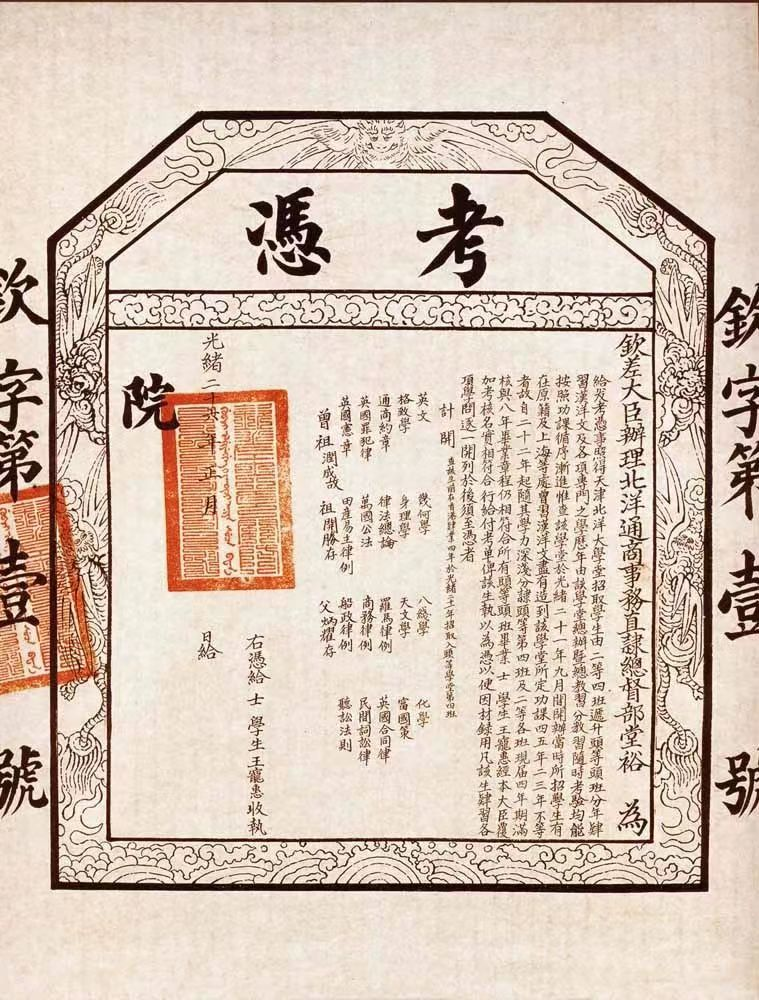 考憑
欽字第壹號
欽差大臣辦理北洋通商事務直隸總督部堂裕 為
給發考憑事照得天津北洋大學堂招取學生由二等四班遞升頭等頭班分年肄
習漢洋文及各項專門之學歷年由該學堂總辦暨總教習分教習隨時考驗均能
按照功課循序漸進惟查該學堂於光緒二十一年九月間開辦當時所招學生有
在原籍及上海等處曾習漢洋文盡有造到該學堂所定功課四五年二三年不等
者故自二十二年起隨其學力深淺分隸頭等第四班及二等各班現屆四年期滿
核與八年畢業章程仍相符合所有頭等頭班畢業士 學生王寵惠經本大臣覆
加考核名實相符合行給付考單俾該生執以為憑以便因材錄用凡該生肄習各
項學問逐一開列於後須至憑者
計開
英文 幾何學 八綫學 化學
格致學 身理學 天文學 富國策
通商約章 律法總論 羅馬律例 英國合同律
英國罪犯律 萬國公法 商務律例 民間詞訟律
英國憲章 田產易主律例 船政律例 聽訟法則
曾祖潤成故 祖開勝存 父炳耀存
右憑給 士 學生王寵惠收執
光緒二十六年正月 日給
院
欽字第壹號